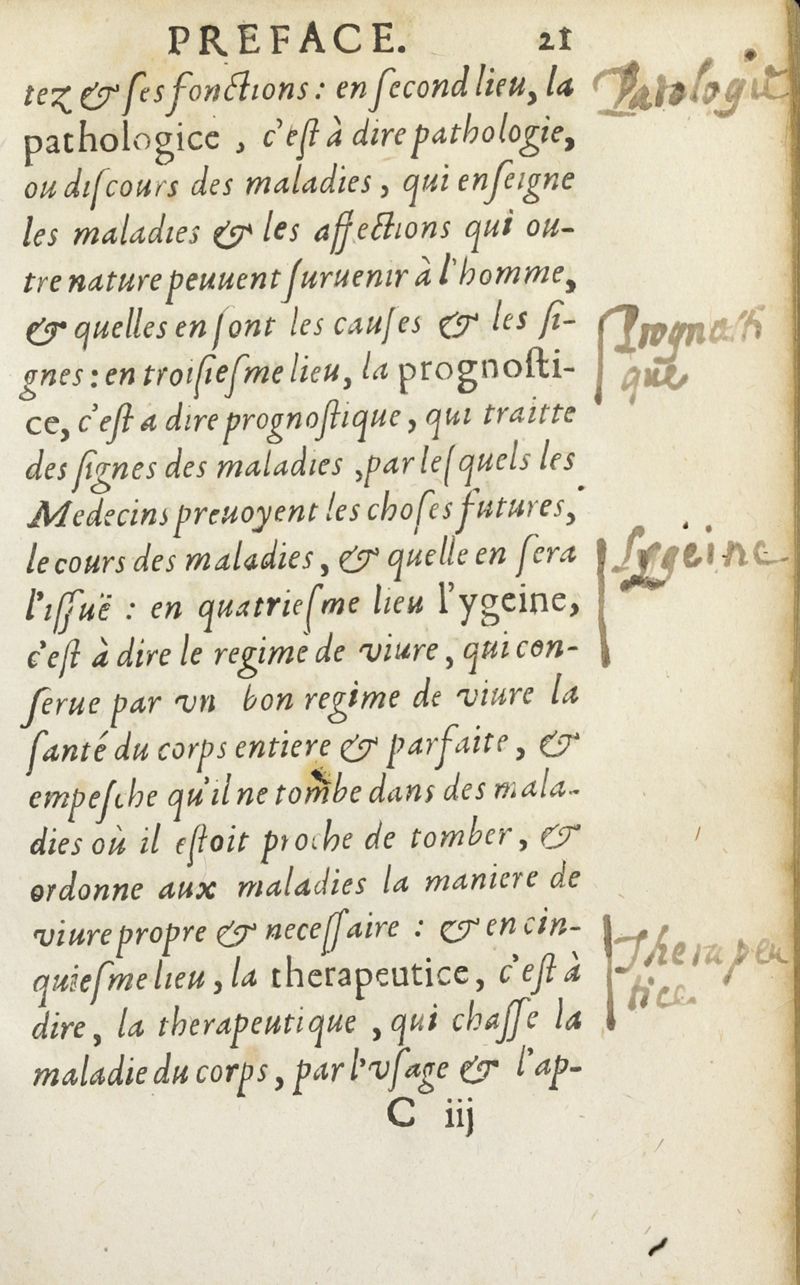 PREFACE. 21
tez & ses fonctions : en second lieu, la
pathologice , c'est à dire pathologie,
ou discours des maladies, qui enseigne
les maladies & les affections qui ou-
tre nature peuuent suruenir à l'homme,
& quelles en sont les causes & les si-
gnes : en troisiesme lieu, la prognosti-
ce, c'est a dire prognostique, qui traitte
des signes des maladies ,par lesquels les
Medecins preuoyent les choses futures,
le cours des maladies, & quelle en sera
l'issuë : en quatriesme lieu l'ygeine,
c'est à dire le regime de viure, qui con-
serue par vn bon regime de viure la
santé du corps entiere & parfaite, &
empesche qu'il ne tombe dans des mala-
dies où il estoit proche de tomber, &
ordonne aux maladies la maniere de
viure propre & necessaire : & en cin-
quiesme lieu, la therapeutice, c'est à
dire, la therapeutique , qui chasse la
maladie du corps, par l'vsage & l'ap-
C iij
Patologie
Prognosti
que
Lygeine
Therapeu
tice.